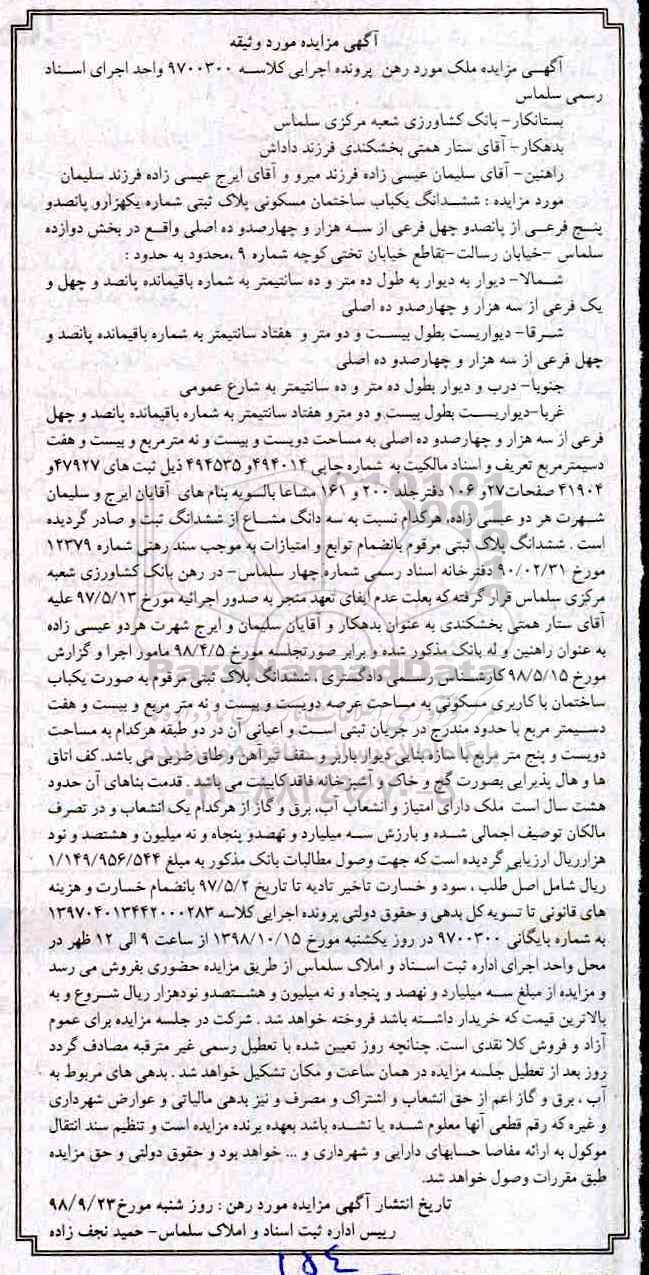 آگهی مزایده مورد وثیقه
آگهــی مزایده ملک مورد رهن پرونده اجرایی کلاسه ۹۷۰۰۳۰۰ واحد اجرای اسناد
رسمی سلماس
بستانکار- بانک کشاورزی شعبه مرکزی سلماس
بدهکار- آقای ستار همتی بخشکندی فرزند داداش
راهنین- آقای سلیمان عیسی زاده فرزند میرو و آقای ایرج عیسی زاده فرزند سلیمان
مورد مزایده : ششدانگ یکباب ساختمان مسکونی پلاک ثبتی شماره یکهزارو پانصدو
پنج فرعی از پانصدو چهل فرعی از سه هزار و چهارصدو ده اصلی واقع در بخش دوازده
سلماس -خیابان رسالت-تقاطع خیابان تختی کوچه شماره ۹ ،محدود به حدود :
شمالا- دیوار به دیوار به طول ده متر و ده سانتیمتر به شماره باقیمانده پانصد و چهل و
یک فرعی از سه هزار و چهارصدو ده اصلی
شرقا- دیواریست بطول بیست و دو متر و هفتاد سانتیمتر به شماره باقیمانده پانصد و
چهل فرعی از سه هزار و چهارصدو ده اصلی
جنوبا- درب و دیوار بطول ده متر و ده سانتیمتر به شارع عمومی
غربا-دیواریست بطول بیست و دو مترو هفتاد سانتیمتر به شماره باقیمانده پانصد و چهل
فرعی از سه هزار و چهارصدو ده اصلی به مساحت دویست و بیست و نه مترمربع و بیست و هفت
دسیمترمربع تعریف و اسناد مالکیت به شماره چاپی ۴۹۴۰۱۴و ۴۹۴۵۳۵ ذیل ثبت های ۴۷۹۲۷و
۴۱۹۰۴ صفحات۲۷و ۱۰۶ دفترجلد ۲۰۰ و ۱۶۱ مشاعا بالسویه بنام های آقایان ایرج و سلیمان
شهرت هر دو عیسی زاده، هرکدام نسبت به سه دانگ مشاع از ششدانگ ثبت و صادر گردیده
است . ششدانگ پلاک ثبتی مرقوم بانضمام توابع و امتیازات به موجب سند رهنی شماره ۱۲۳۷۹
مورخ ۹۰/۰۲/۳۱ دفترخانه اسناد رسمی شماره چهار سلماس- در رهن بانک کشاورزی شعبه
مرکزی سلماس قرار گرفته که بعلت عدم ایفای تعهد منجر به صدور اجرائیه مورخ ۹۷/۵/۱۳ علیه
آقای ستار همتی بخشکندی به عنوان بدهکار و آقایان سلیمان و ایرج شهرت هردو عیسی زاده
به عنوان راهنین و له بانک مذکور شده و برابر صورتجلسه مورخ ۹۸/۴/۵ مامور اجرا و گزارش
مورخ ۹۸/۵/۱۵ کارشناس رسمی دادگستری ، ششدانگ پلاک ثبتی مرقوم به صورت یکباب
ساختمان با کاربری مسکونی به مساحت عرصه دویست و بیست و نه متر مربع و بیست و هفت
دسیمتر مربع با حدود مندرج در جریان ثبتی است و اعیانی آن در دو طبقه هرکدام به مساحت
دویست و پنج متر مربع با سازه بنایی دیوار باربر و سقف تیرآهن و طاق ضربی می باشد. کف اتاق
ها و هال پذیرایی بصورت گچ و خاک و آشپزخانه فاقد کابینت می باشد . قدمت بناهای آن حدود
هشت سال است ملک دارای امتیاز و انشعاب آب، برق و گاز از هرکدام یک انشعاب و در تصرف
مالکان توصیف اجمالی شده و بارزش سه میلیارد و نهصدو پنجاه و نه میلیون و هشتصد و نود
هزارریال ارزیابی گردیده است که جهت وصول مطالبات بانک مذکور به مبلغ ۱/۱۴۹/۹۵۶/۵۴۴
ریال شامل اصل طلب ، سود و خسارت تاخیر تادیه تا تاریخ ۹۷/۵/۲ بانضمام خسارت و هزینه
های قانونی تا تسویه کل بدهی و حقوق دولتی پرونده اجرایی کلاسه ۱۳۹۷۰۴۰۱۳۴۴۲۰۰۰۲۸۳
به شماره بایگانی ۹۷۰۰۳۰۰ در روز یکشنبه مورخ ۱۳۹۸/۱۰/۱۵ از ساعت ۹ الی ۱۲ ظهر در
محل واحد اجرای اداره ثبت اسناد و املاک سلماس از طریق مزایده حضوری بفروش می رسد
و مزایده از مبلغ سه میلیارد و نهصد و پنجاه و نه میلیون و هشتصدو نودهزار ریال شروع و به
بالاترین قیمت که خریدار داشته باشد فروخته خواهد شد . شرکت در جلسه مزایده برای عموم
آزاد و فروش کلا نقدی است. چنانچه روز تعیین شده با تعطیل رسمی غیر مترقبه مصادف گردد
روز بعد از تعطیل جلسه مزایده در همان ساعت و مکان تشکیل خواهد شد . بدهی های مربوط به
آب ، برق و گاز اعم از حق انشعاب و اشتراک و مصرف و نیز بدهی مالیاتی و عوارض شهرداری
و غیره که رقم قطعی آنها معلوم شده یا نشده باشد بعهده برنده مزایده است و تنظیم سند انتقال
موکول به ارائه مفاصا حسابهای دارایی و شهرداری و ... خواهد بود و حقوق دولتی و حق مزایده
طبق مقررات وصول خواهد شد.
تاریخ انتشار آگهی مزایده مورد رهن : روز شنبه مورخ۹۸/۹/۲۳
رییس اداره ثبت اسناد و املاک سلماس- حمید نجف زاده
ParsNamadData